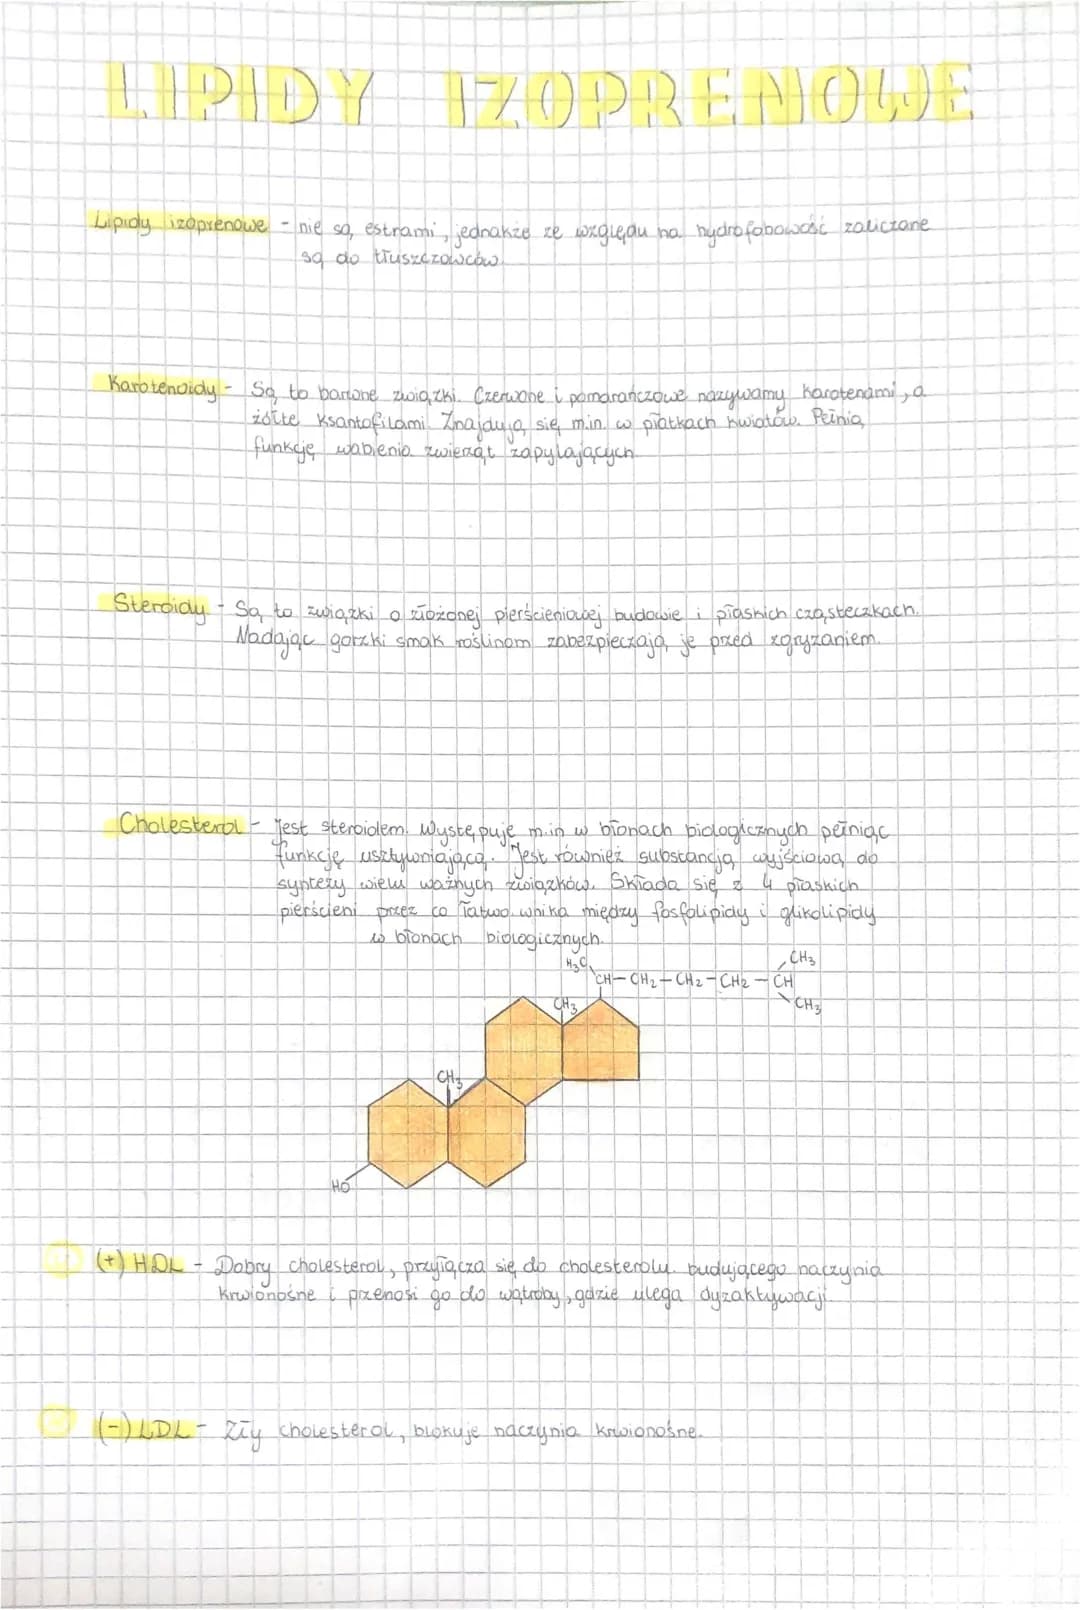 LIPIDY IZOPRENOWE
Lipidy izoprenowe - nie są estrami, jednakże ze względu na hydrofobowość zaliczane
są do tłuszczowców.
Karotenoidy - Są to barwne związki. Czerwone i pomarańczowe nazywamy karotenami, a
żółte ksantofilami. Znajdują się m.in. w płatkach kwiatów. Pełnią
funkcję wabienia zwierząt zapylających.
Steroidy - Są to związki o złożonej pierścieniowej budowie i płaskich cząsteczkach.
Nadając gorzki smak roślinom zabezpieczają je przed zgryzaniem.
Cholesterol - Jest steroidem. Występuje m.in w błonach biologicznych pełniąc
funkcję usztywniającą. Jest również substancją wyjściową do
syntezy wielu ważnych związków. Składa się z 4 płaskich
pierścieni przez co łatwo wnika między fosfolipidy i glikolipidy
w błonach biologicznych.
H3C CH3
CH-CH2-CH2-CH2-CH
CH3 CH3
CH3
HO
(+) HDL - Dobry cholesterol, przyłącza się do cholesterolu budującego naczynia
krwionośne i przenosi go do wątroby, gdzie ulega dyzaktywacji.
(-) LDL - Zły cholesterol, blokuje naczynia krwionośne.